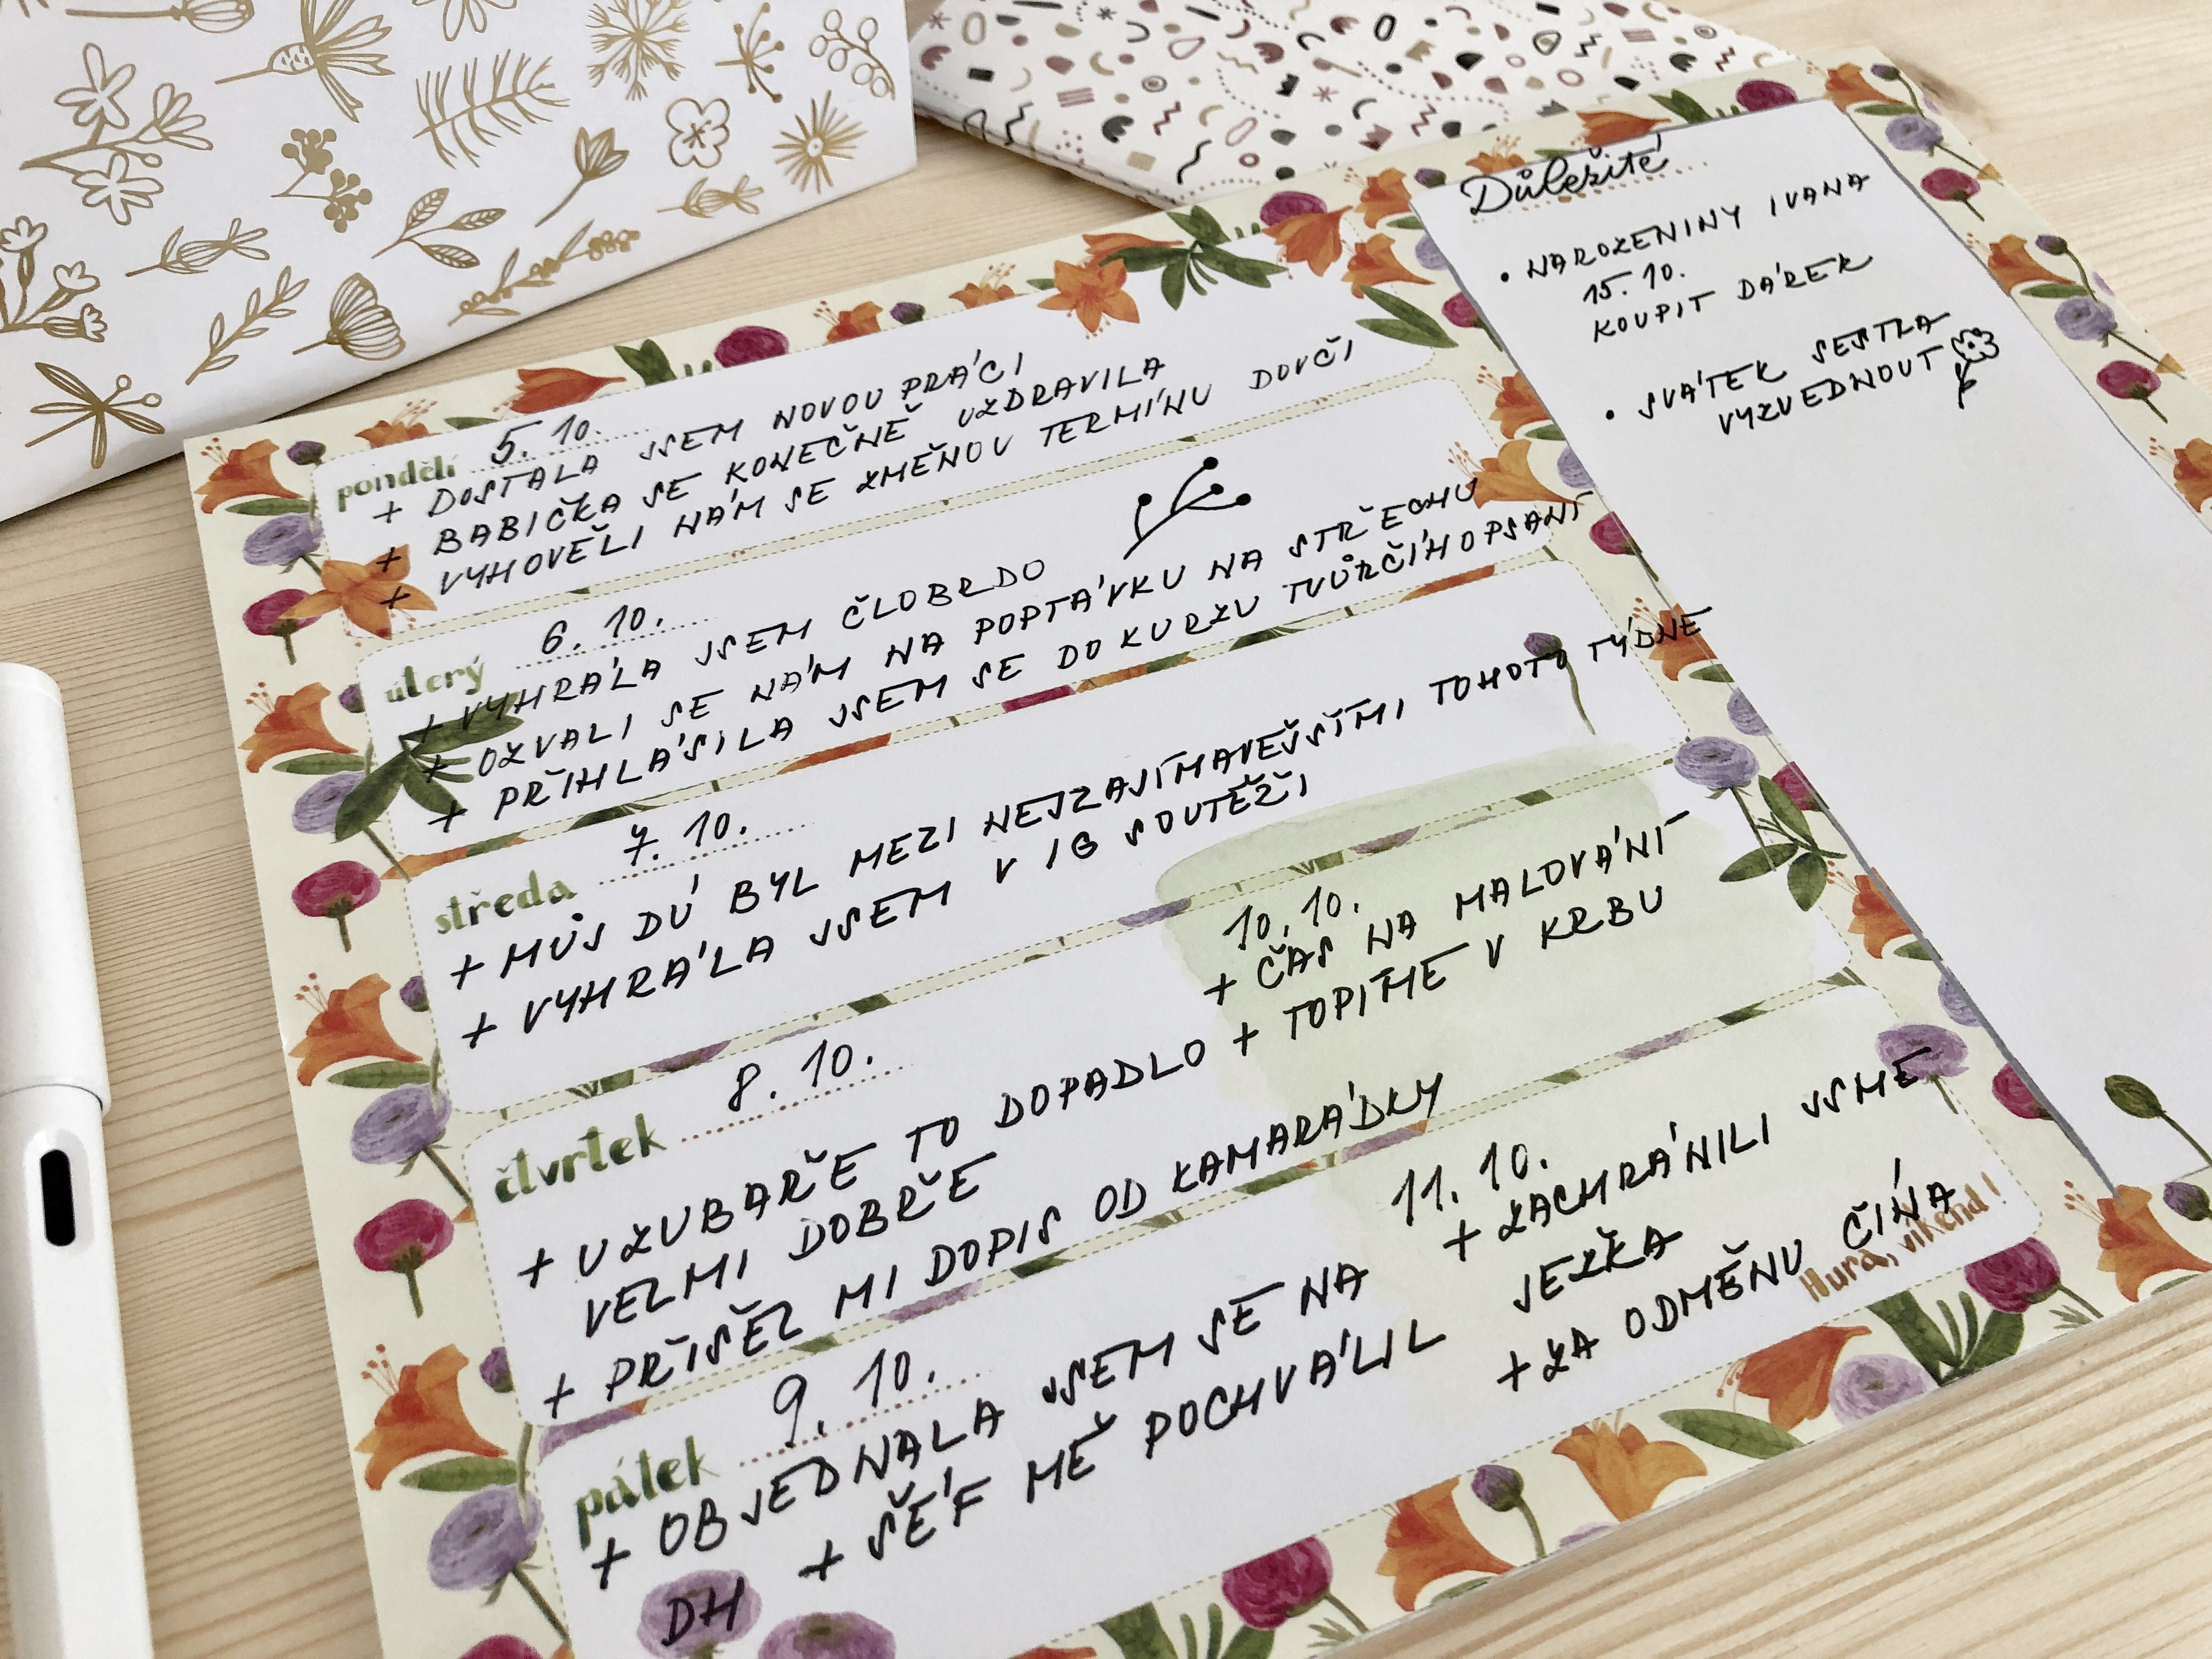 pondělí 5. 10.
+ DOSTALA JSEM NOVOU PRÁCI
+ BABIČKA SE KONEČNĚ UZDRAVILA
+ VYHOVĚLI NÁM SE ZMĚNOU TERMÍNU DOVČI
úterý 6. 10.
+ VYHRÁLA JSEM ČLOBRDO
+ OZVALI SE NÁM NA POPTÁVKU NA STŘECHU
+ PŘIHLÁSILA JSEM SE DO KURZU TVŮRČÍHO PSANÍ
středa 7. 10.
+ MŮJ DÚ BYL MEZI NEJZAJÍMAVĚJŠÍMI TOHOTO TÝDNE
+ VYHRÁLA JSEM V IG SOUTĚŽI
čtvrtek 8. 10.
+ U ZUBAŘE TO DOPADLO
VELMI DOBŘE
+ PŘIŠEL MI DOPIS OD KAMARÁDKY
pátek 9. 10.
+ OBJEDNALA JSEM SE NA
DH + ŠÉF MĚ POCHVÁLIL
10. 10.
+ ČAS NA MALOVÁNÍ
+ TOPÍME V KRBU
11. 10.
+ ZACHRÁNILI JSME
JEŽKA
+ ZA ODMĚNU ČÍNA
Hurá, víkend!
Důležité
• NAROZENINY IVANA
15. 10.
KOUPIT DÁREK
• SVÁTEK SESTRA
VYZVEDNOUT